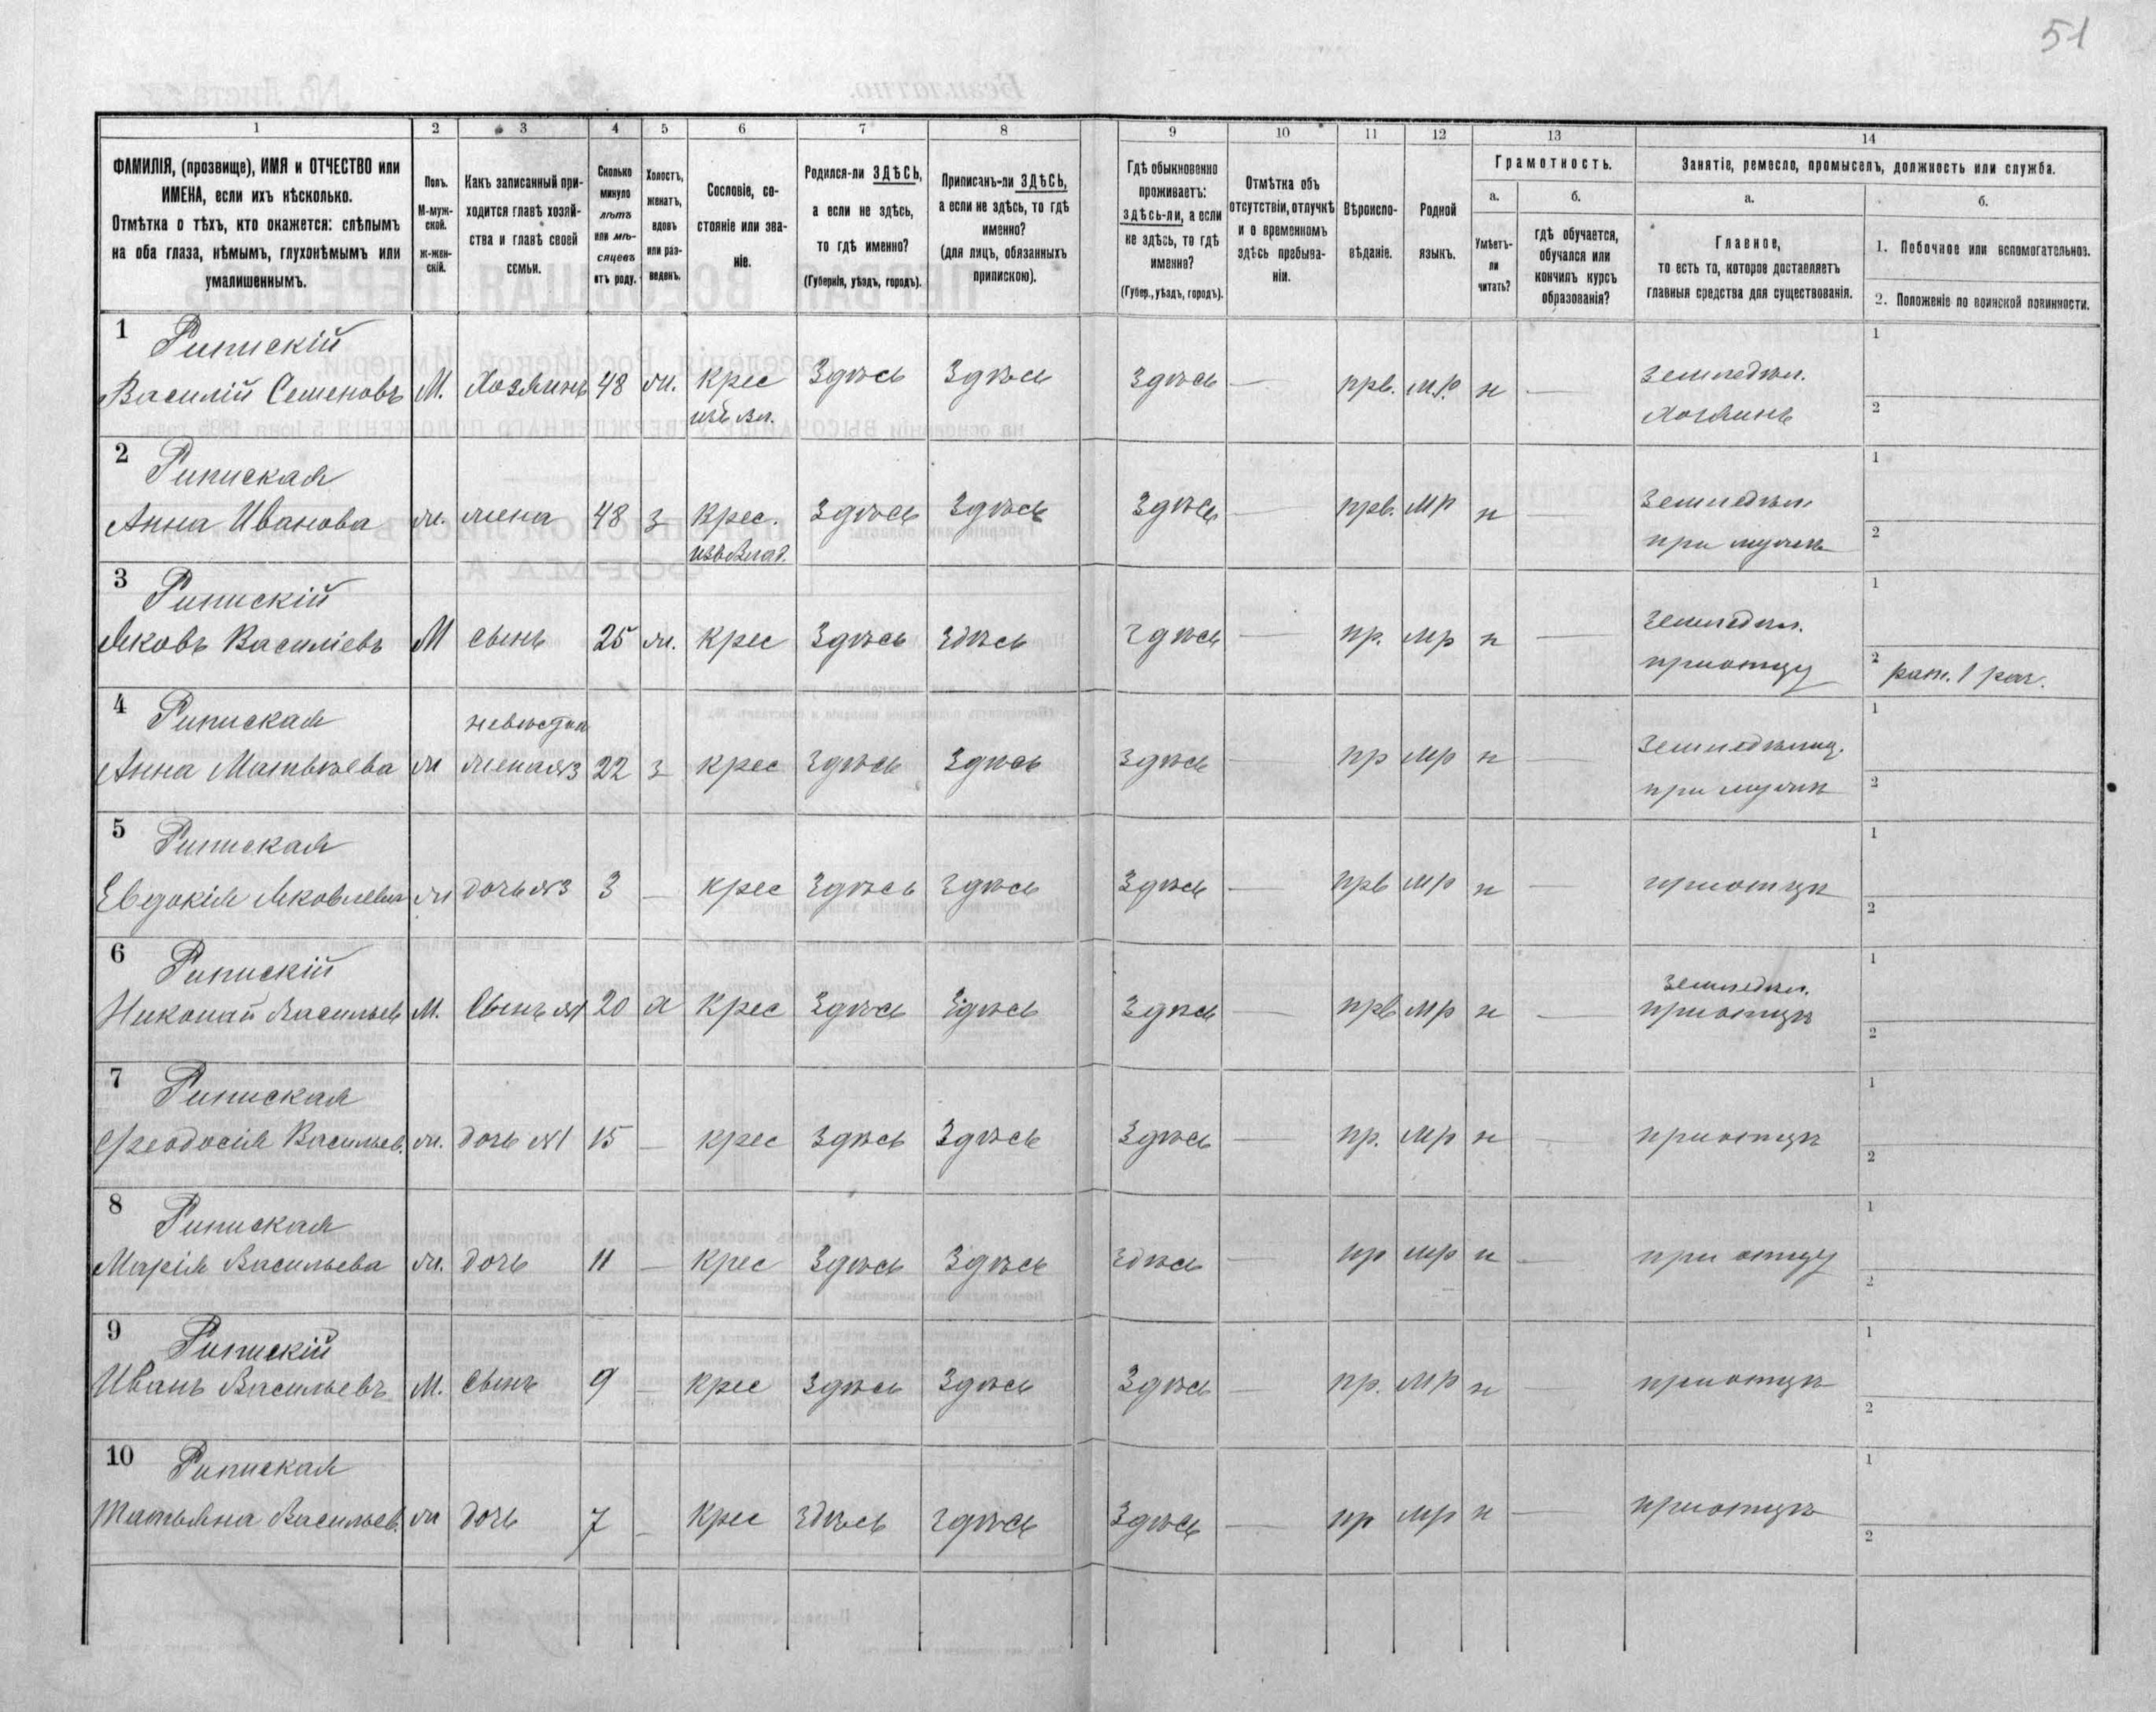 51
1 2 3 4 5 6 7 8 9 10 11 12 13 14
ФАМИЛІЯ, (прозвище), ИМЯ и ОТЧЕСТВО или
ИМЕНА, если ихъ нѣсколько.
Отмѣтка о тѣхъ, кто окажется: слѣпымъ
на оба глаза, нѣмымъ, глухонѣмымъ или
умалишеннымъ.
Полъ.
М-муж-
ской.
ж-жен-
скій.
Какъ записанный при-
ходится главѣ хозяй-
ства и главѣ своей
семьи.
Сколько
минуло
лѣтъ
или мѣ-
сяцевъ
отъ роду.
Холостъ,
женатъ,
вдовъ
или раз-
веденъ.
Сословіе, со-
стояніе или зва-
ніе.
Родился-ли ЗДѢСЬ,
а если не здѣсь,
то гдѣ именно?
(Губернія, уѣздъ, городъ).
Приписанъ-ли ЗДѢСЬ,
а если не здѣсь, то гдѣ
именно?
(для лицъ, обязанныхъ
припискою).
Гдѣ обыкновенно
проживаетъ:
здѣсь-ли, а если
не здѣсь, то гдѣ
именно?
(Губер., уѣздъ, городъ).
Отмѣтка объ
отсутствіи, отлучкѣ
и о временномъ
здѣсь пребыва-
ніи.
Вѣроиспо-
вѣданіе.
Родной
языкъ.
Грамотность.
а.
Умѣетъ-
ли
читать?
б.
гдѣ обучается,
обучался или
кончилъ курсъ
образованія?
Занятіе, ремесло, промыселъ, должность или служба.
а.
Главное,
то есть то, которое доставляетъ
главныя средства для существованія.
б.
1. Побочное или вспомогательное.
2. Положеніе по воинской повинности.
1 Рипискій
Василій Семеновъ М. Хозяинъ 48 ж. крес Здѣсь Здѣсь Здѣсь — прв. мр. н — земледѣл. 1
изъ вл. Хозяинъ 2
2 Рипиская
Анна Иванова ж. жена 48 з крес. Здѣсь Здѣсь Здѣсь — прв. мр н — Земледѣл 1
изъ влад. при мужѣ 2
3 Рипискій
Яковъ Василіевъ М сынъ 25 ж. крес Здѣсь Здѣсь Здѣсь — пр. мр н — земледѣл. 1
при отцу 2 рат. 1 раз.
4 Рипиская невѣстка
Анна Матвѣева ж жена №3 22 з крес Здѣсь Здѣсь Здѣсь — пр мр н — 1
при мужѣ 2
5 Рипиская
Евдокія Яковлева ж дочь №3 3 — крес Здѣсь Здѣсь Здѣсь — прв мр н — при отцѣ 1
2
6 Рипискій земледѣл.
Николай Васильев М. Сынъ №1 20 х крес Здѣсь Здѣсь Здѣсь — прв мр н — при отцѣ 1
2
7 Рипиская
Феодосія Васильев. ж. дочь №1 15 — крес Здѣсь Здѣсь Здѣсь — пр. мр н — при отцѣ 1
2
8 Рипиская
Марія Васильева ж. дочь 11 — крес Здѣсь Здѣсь Здѣсь — пр мр н — при отцу 1
2
9 Рипискій
Иванъ Васильевъ М. Сынъ 9 — крес Здѣсь Здѣсь Здѣсь — пр. мр н — при отцѣ 1
2
10 Рипиская
Татьяна Васильев. ж дочь 7 — крес Здѣсь Здѣсь Здѣсь — пр мр н — при отцѣ 1
2